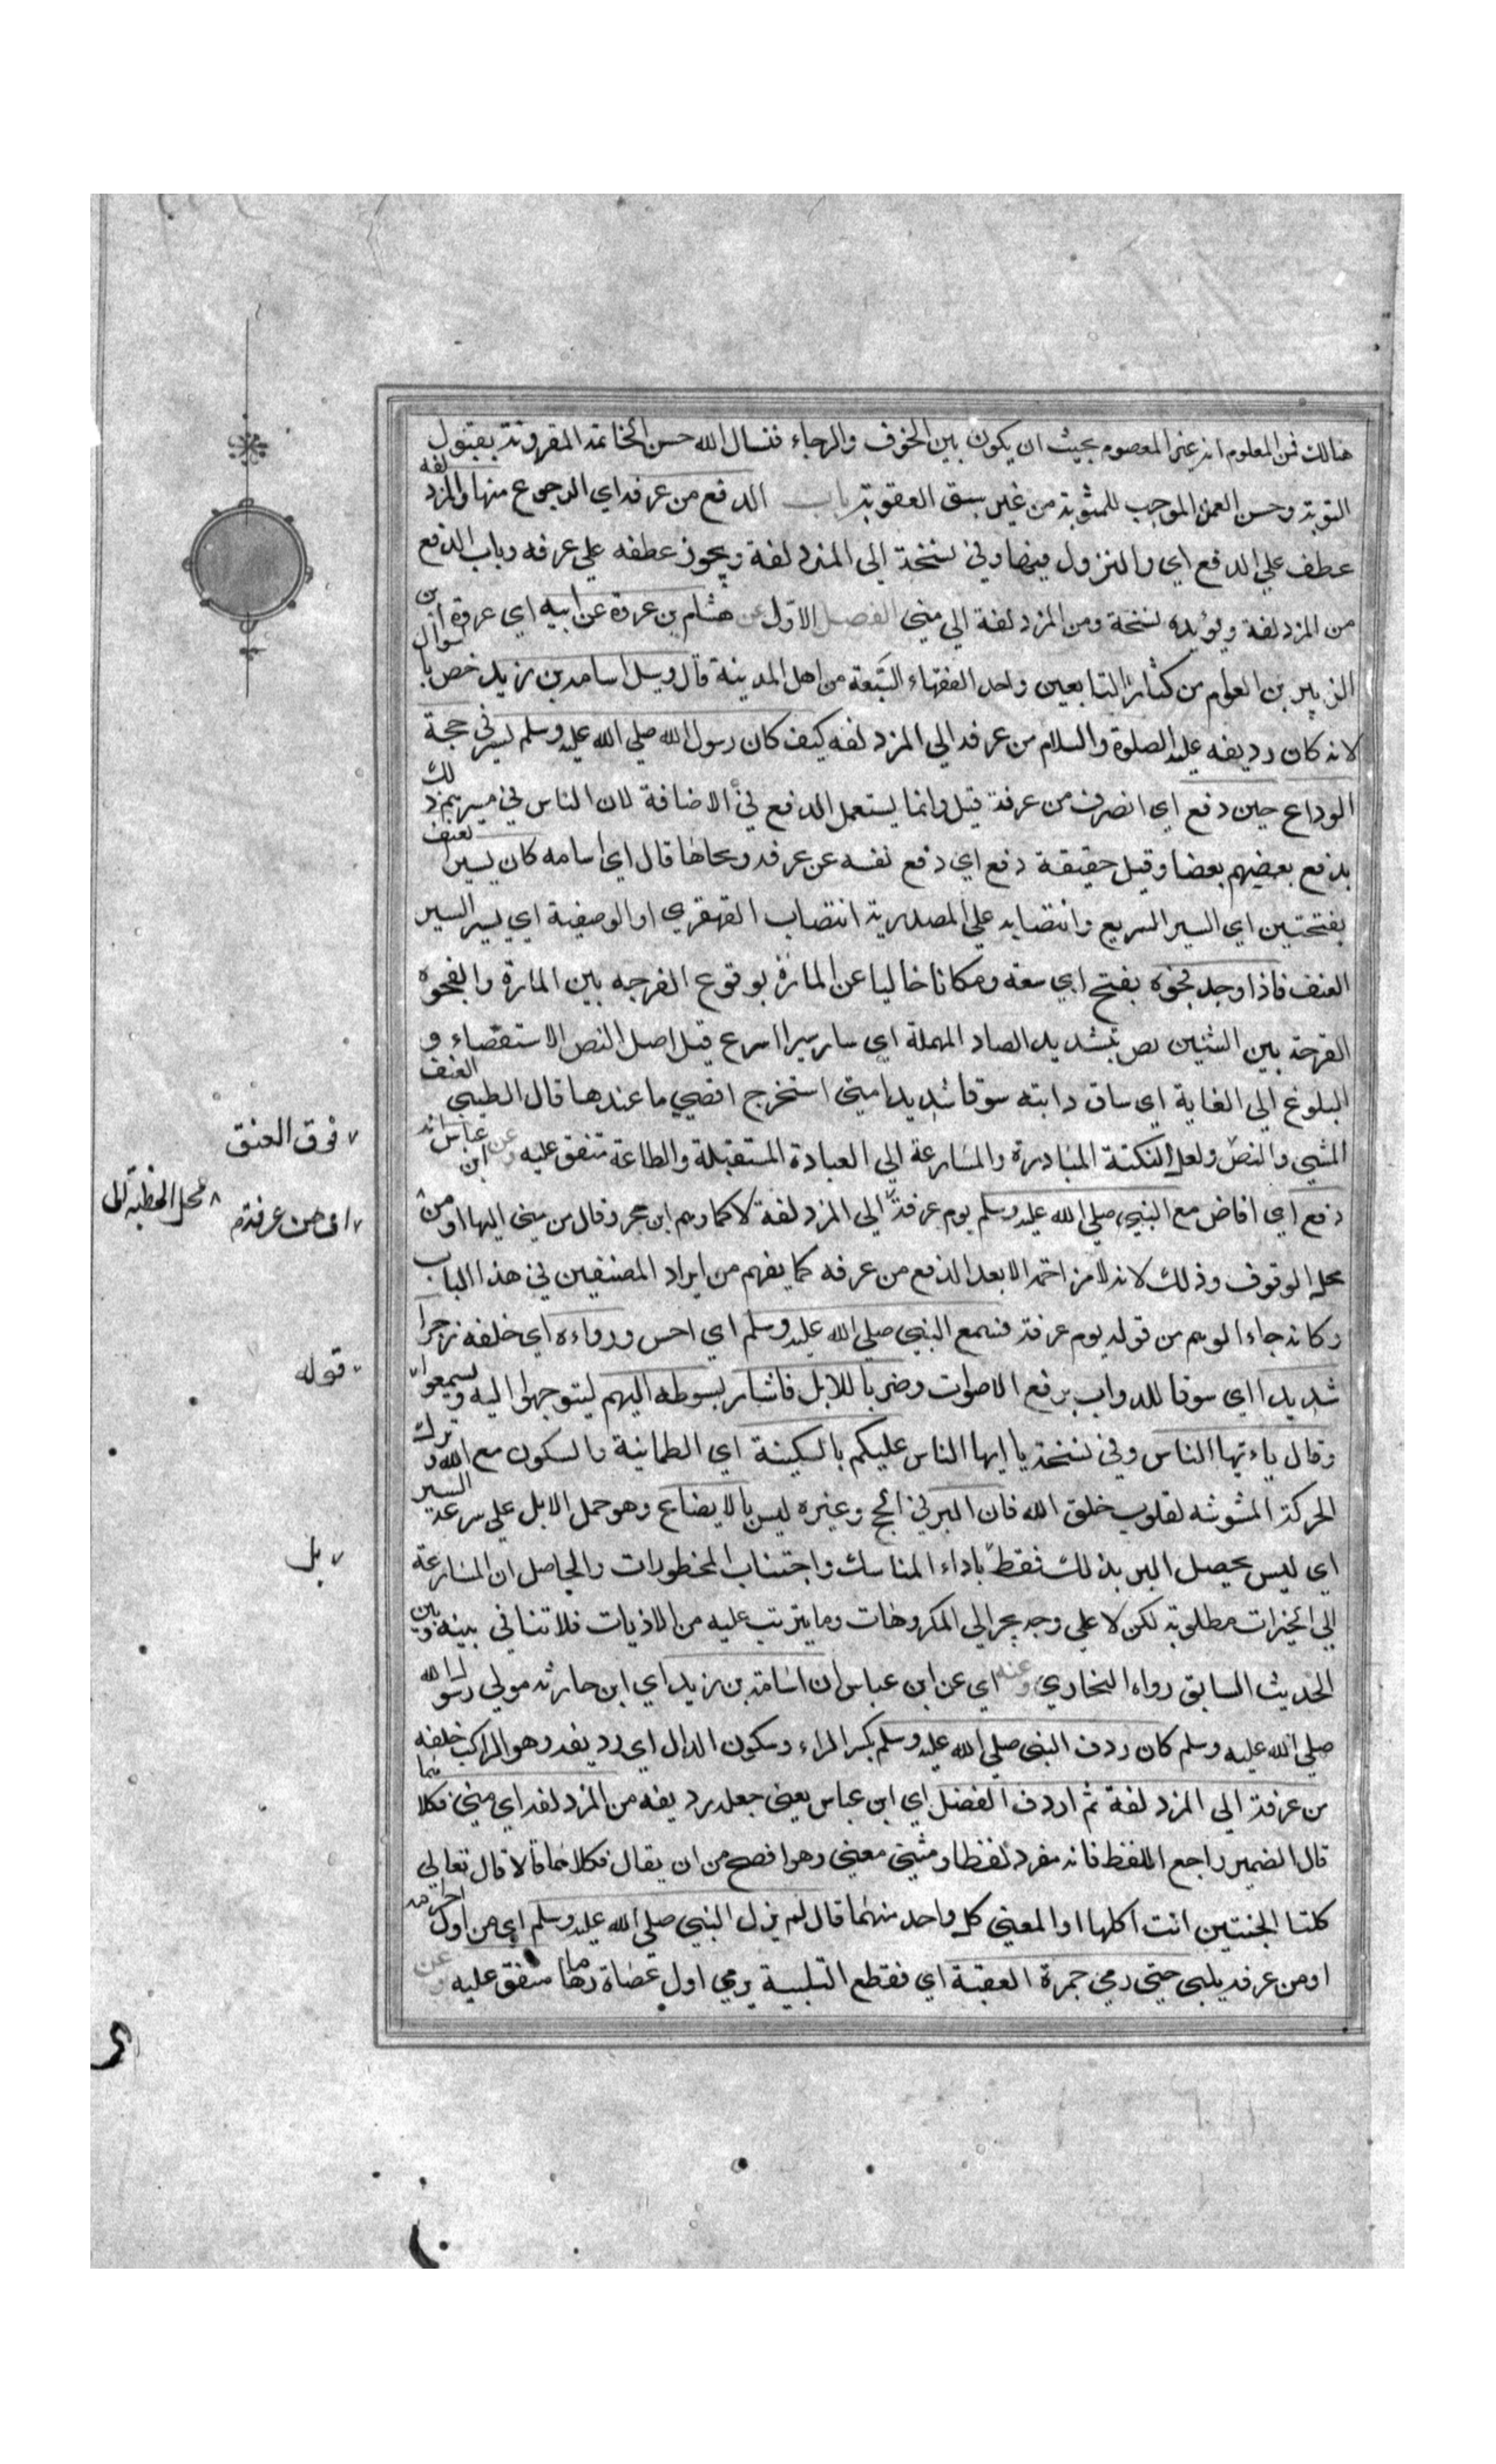 هنالك فمن المعلوم انه غير المعصوم بحيث ان يكون بين الخوف والرجاء فنسال الله حسن الخاتمة المقرونة بقبول
التوبة وحسن العمل الموجب للمثوبة من غير سبق العقوبة باب الدفع من عرفة اي الرجوع منها والمزدلفة
عطف علي الدفع اي والنزول فيها وفي نسخة الي المزدلفة ويجوز عطفه علي عرفه وباب الدفع
من المزدلفة ويؤيده نسخة ومن المزدلفة الي مني الفصل الاول عن هشام بن عروة عن ابيه اي عروة ابن
الزبير بن العوام من كبار التابعين واحد الفقهاء السبعة من اهل المدينة قال وسئل اسامة بن زيد خص بالسوال
لانه كان رديفه عليه الصلوة والسلام من عرفه الي المزدلفه كيف كان رسول الله صلي الله عليه وسلم يسير في حجة
الوداع حين دفع اي انصرف من عرفة قيل وانما يستعمل الدفع في الافاضة لان الناس في مسيرهم ذلك
يدفع بعضهم بعضا وقيل حقيقة دفع اي دفع نفسه عن عرفه ونحاها قال اي اسامه كان يسير العنق
بفتحتين اي السير السريع وانتصابه علي المصدرية انتصاب القهقري او الوصفية اي يسير السير
العنق فاذا وجد فجوه بفتح اي سعة ومكانا خاليا عن المارة بوقوع الفرجه بين المارة والفجوه
الفرجة بين الشئين نص بتشديد الصاد المهملة اي سار سيرا اسرع قيل اصل النص الاستقصاء و
البلوغ الي الغاية اي ساق دابته سوقا شديدا حتي استخرج اقصي ما عندها قال الطيبي العنق
المشي والنص ولعل النكتة المبادرة والمسارعة الي العبادة المستقبلة والطاعة متفق عليه وعن ابن عباس انه
دفع اي افاض مع النبي صلي الله عليه وسلم يوم عرفة الي المزدلفة لا كما وهم ابن حجر وقال من مني اليها او من
محل الوقوف وذلك لانه لا مزاحمة الا بعد الدفع من عرفه كما يفهم من ايراد المصنفين في هذا الباب
وكانه جاء الوهم من قوله يوم عرفة فسمع النبي صلي الله عليه وسلم اي احس وروءاه اي خلفه زجرا
شديدا اي سوقا للدواب برفع الاصوات وضربا للابل فاشار بسوطه اليهم ليتوجهوا اليه ويسمعوا
وقال ياءيها الناس وفي نسخة يا ايها الناس عليكم بالسكينة اي الطمانية والسكون مع الله وترك
الحركة المشوشه لقلوب خلق الله فان البر في الحج وغيره ليس بالايضاع وهو حمل الابل علي سرعة السير
اي ليس يحصل البر بذلك فقط باداء المناسك واجتناب المحظورات والحاصل ان المسارعة
الي الخيرات مطلوبة لكن لا علي وجه يجر الي المكروهات وما يترتب عليه من الاذيات فلا تنافي بينه وبين
الحديث السابق رواه البخاري وعنه اي عن ابن عباس ان اسامة بن زيد اي ابن حارثه مولي رسول الله
صلي الله عليه وسلم كان ردف النبي صلي الله عليه وسلم بكسر الراء وسكون الدال اي رديفه وهو الراكب خلفه
من عرفة الي المزدلفة ثم اردف الفضل اي ابن عباس يعني جعله رديفه من المزدلفه اي مني فكلاهما
قال الضمير راجع اللفظ فانه مفرد لفظا ومثني معني وهو افصح من ان يقال فكلاهما قالا قال تعالي
كلتا الجنتين اتت اكلها او المعني كل واحد منهما قال لم يزل النبي صلي الله عليه وسلم اي من اول احرامه
او من عرفه يلبي حتي رمي جمرة العقبة اي فقطع التلبية برمي اول حصاة رماها متفق عليه وعن
فوق العنق
اي من عرفة
محل الخطبة الي
قوله
بل